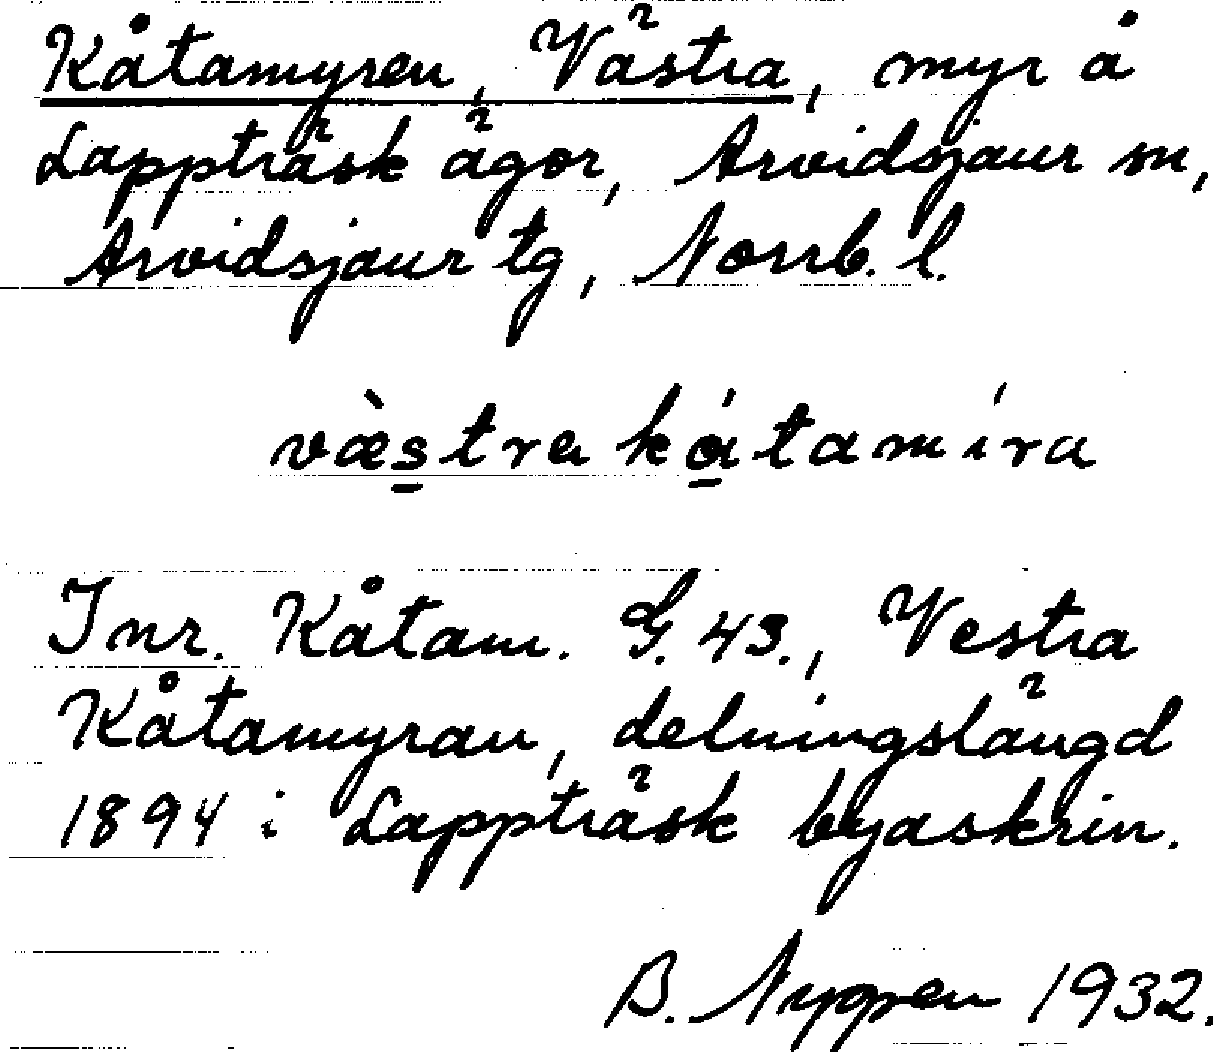 Kåtamyren, Västra, myr å
Lappträsk ägor, Arvidsjaur sn,
Arvidsjaur tg, Norrb. l.
væ̀s̲tra kɑ̲́tamíra
Inr. Kåtam. G. 43., Vestra
Kåtamyran, delningslängd
1894 i Lappträsk byaskrin.
B. Nygren 1932.